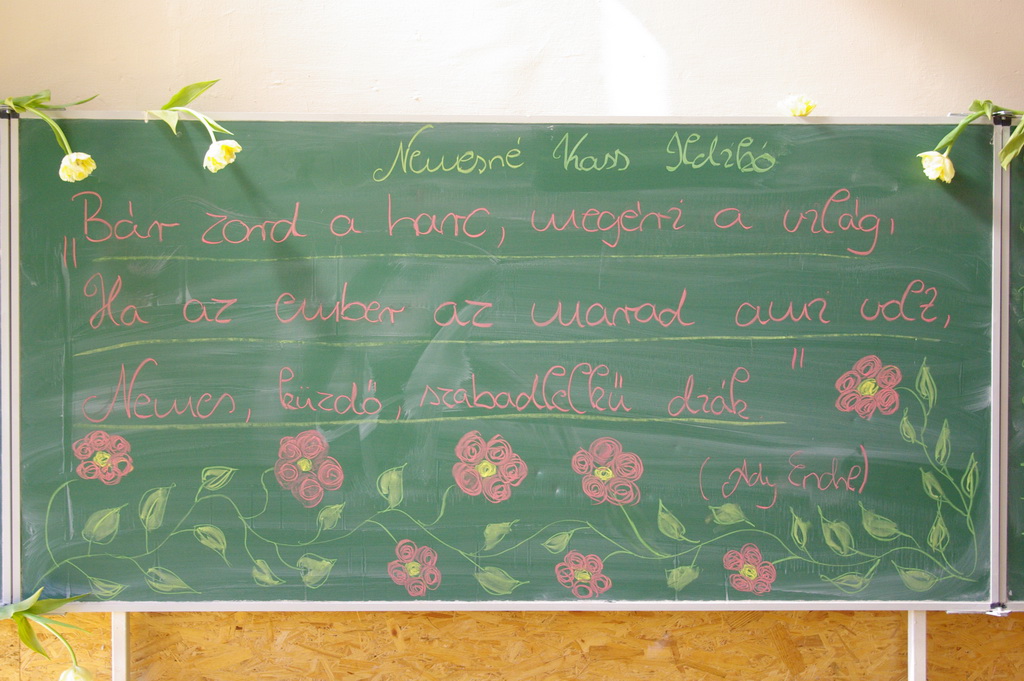 Nemesné Kass Ildikó
"Bár zord a harc, megéri a világ,
Ha az ember az marad ami volt,
Nemes, küzdő, szabadlelkű diák"
(Ady Endre)